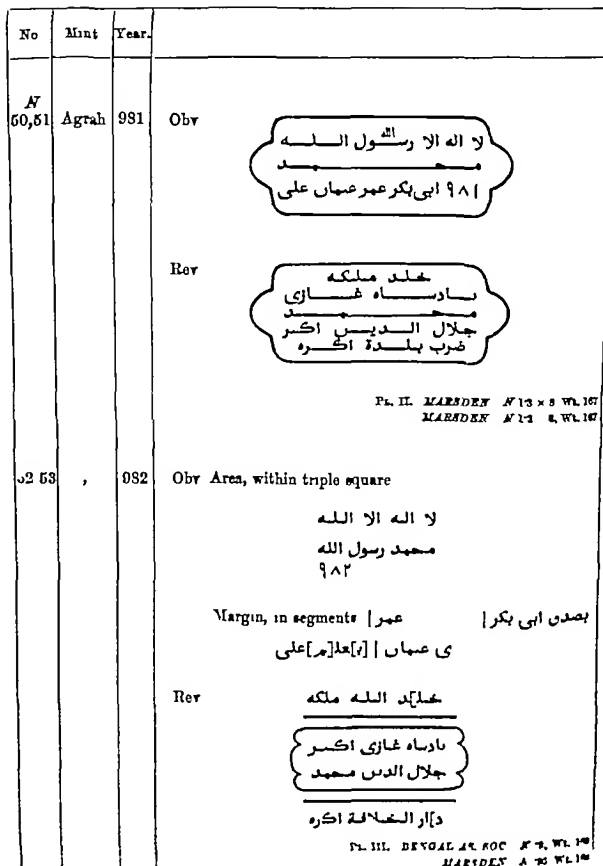 No Mint Year.
N
50,51 Agrah 981 Obv
لا اله الا رسول الله اللـــه
محمد
٩٨١ ابی بکر عمر عىمان علی
Rev
خلد ملکه
ىادساه غازی
محمد
جلال الدىں اکبر
ضرب بلدة اکره
Pl. II. MARSDEN N 1·3 × ·8 Wt. 167
MARSDEN N Wt. 167
52 53 , 982 Obv Area, within triple square
لا اله الا الله
محمد رسول الله
٩٨٢
Margin, in segments بصدق ابی بکر | عمر |
ی عىمان | [ب]عل[م] علی
Rev
خل[د] الله ملکه
ىادساه غازی اکبر
جلال الدىں محمد
د]ار الخلافة اکره
Pl. III. BENGAL AS. SOC N Wt.
MARSDEN Wt.